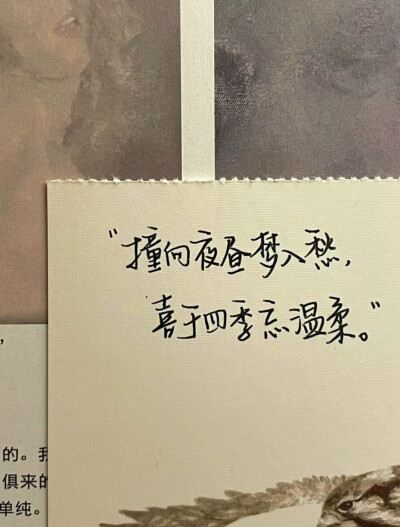 “撞向夜昼梦入愁,
喜于四季忘温柔。”
的。我
俱来的
单纯。